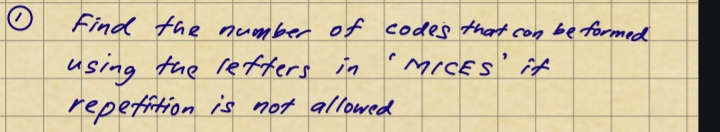 ① Find the number of codes that can be formed
using the letters in 'MICES' if
repetition is not allowed